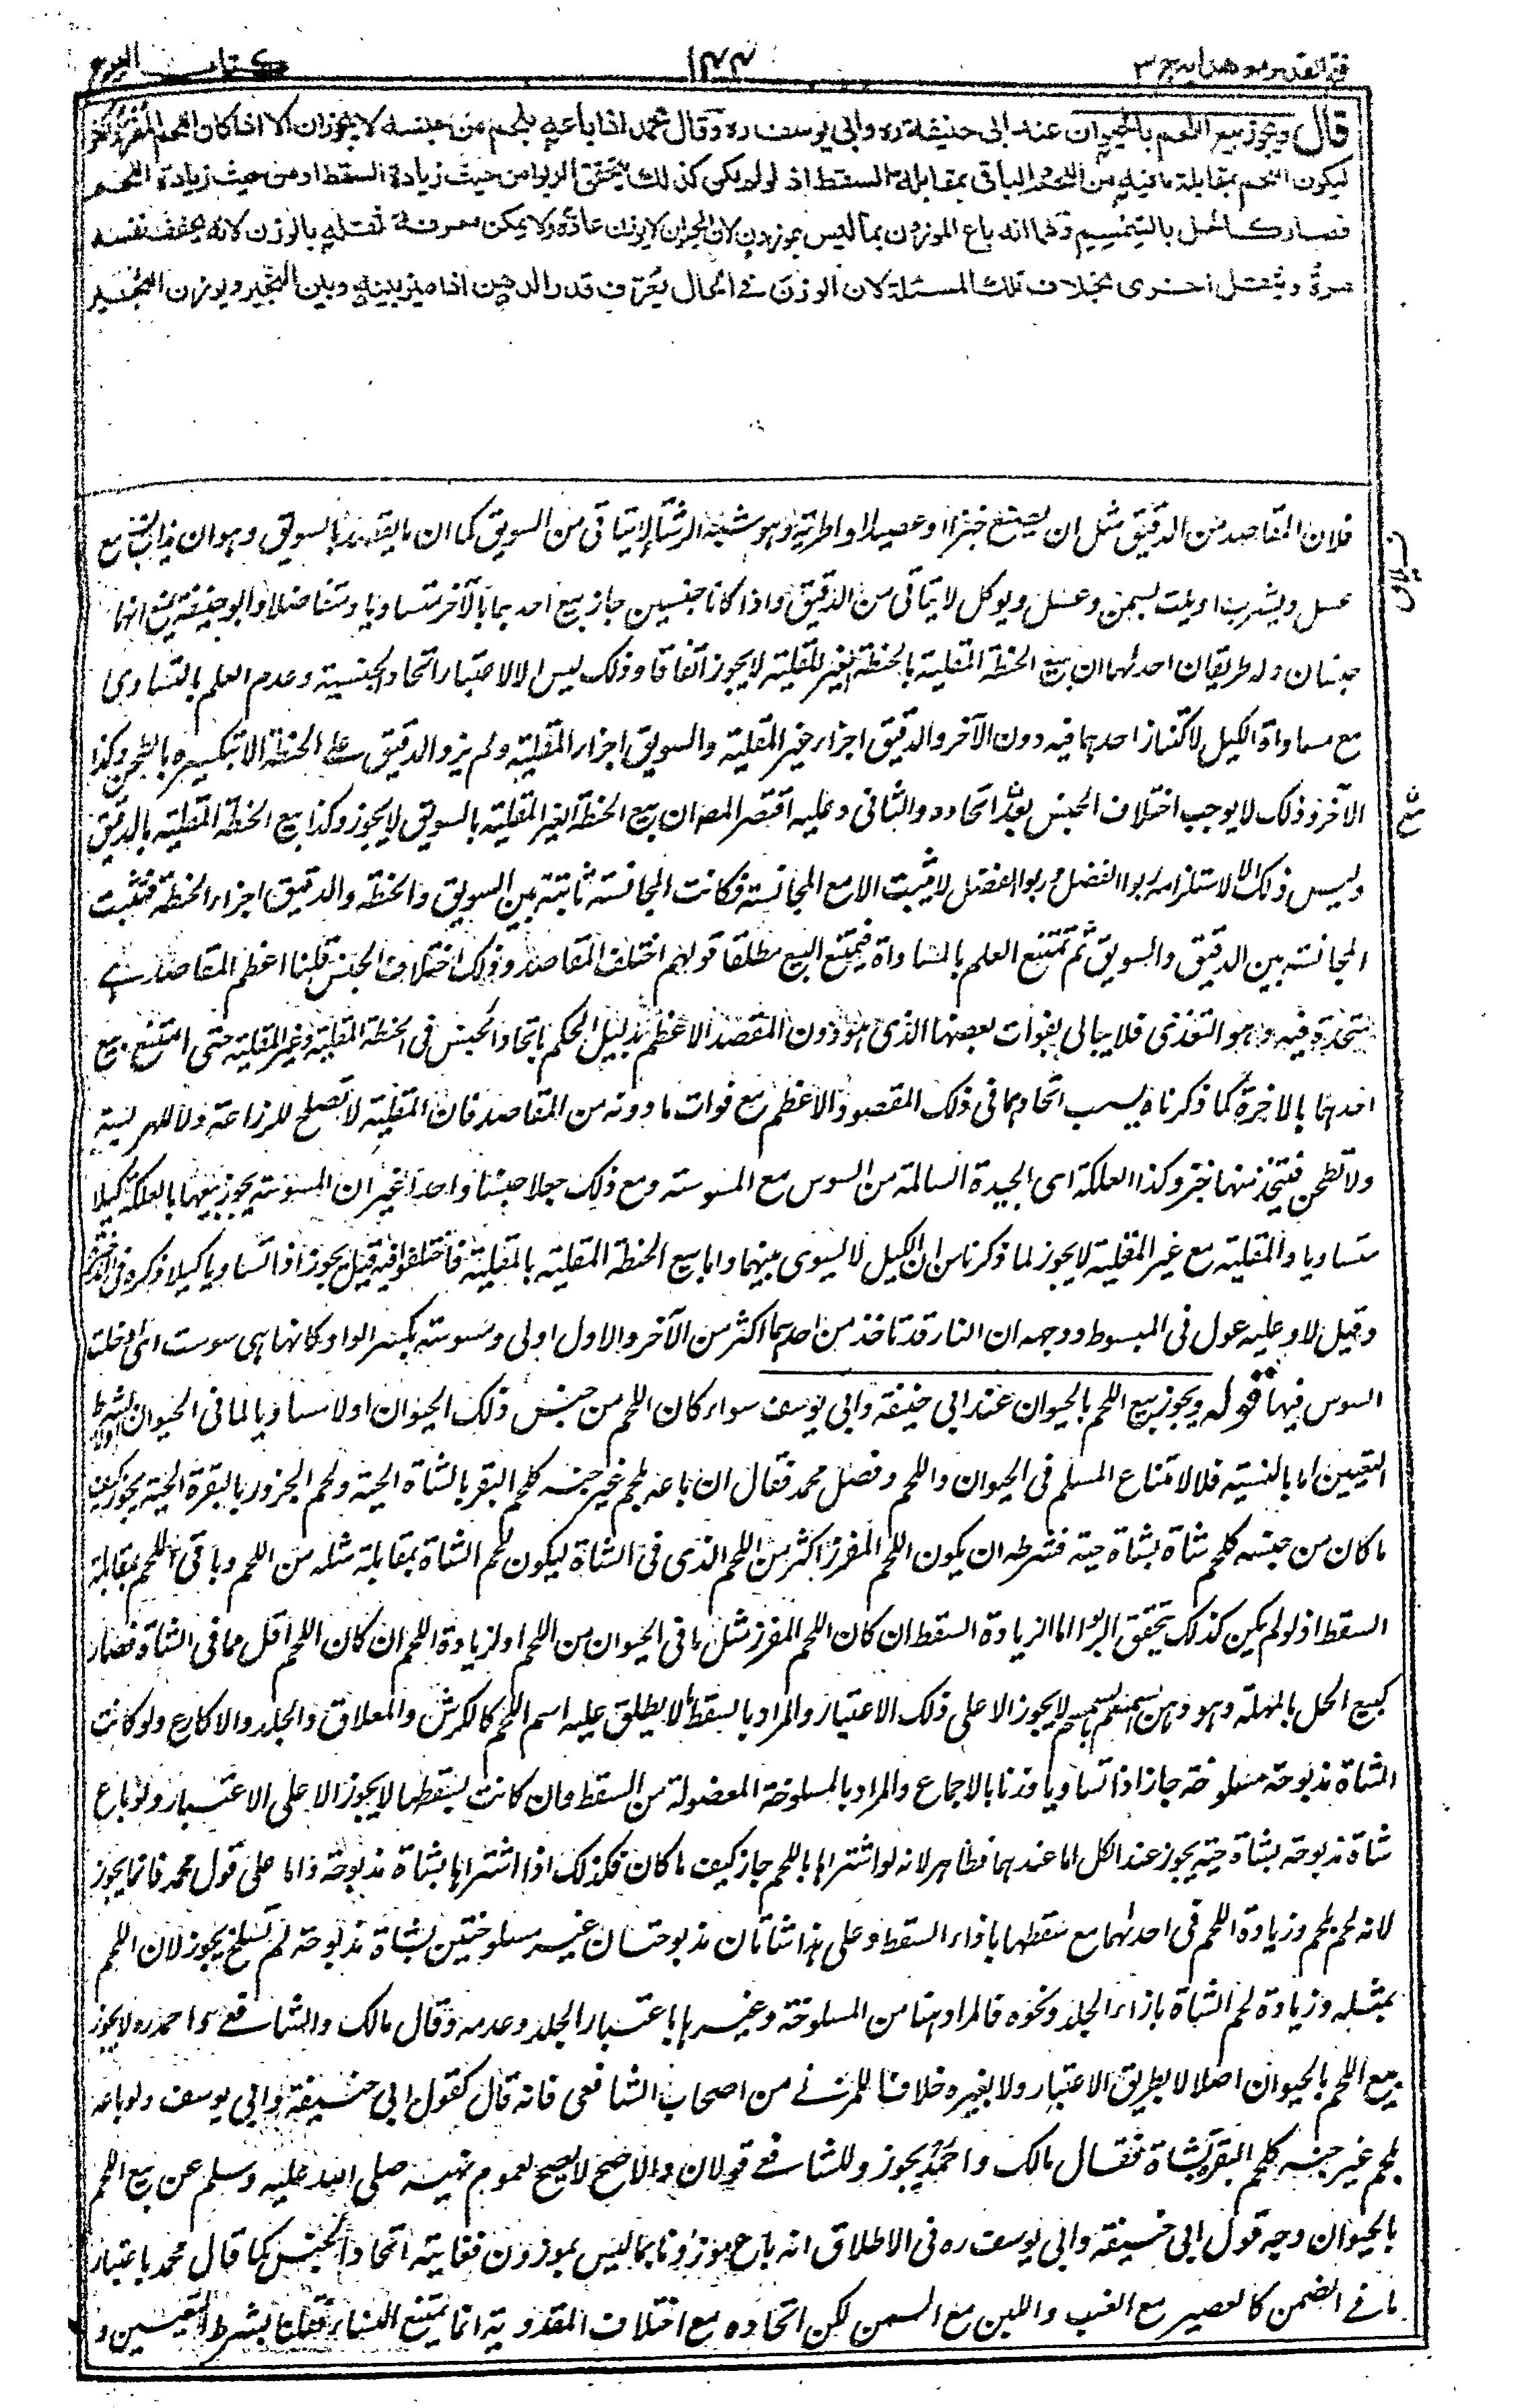 فتح القدير مع هدايه ج ٣ ١٤٤ كتاب البيوع
قال ويجوز بيع اللحم بالحيوان عند ابى حنيفة ره وابى يوسف ره وقال محمد اذا باعه بلحم من جنسه لا يجوز ان الا اذا كان اللحم المفرز اكثر
ليكون اللحم بمقابلة ما فيه من اللحم والباقى بمقابلة السقط اذ لو لم يكن كذلك يتحقق الربوا من حيث زيادة السقط او من حيث زيادة اللحم
فصار كالخل بالسمسم ولهما انه باع الموزون بما ليس بموزون لان الحيوان لا يوزن عادة ولا يمكن معرفة ثقله بالوزن لانه يخفف نفسه
مرة ويثقل اخرى بخلاف تلك المسئلة لان الوزن فى الحال يعرف قدر الدهن اذا ميز بينه وبين الثجير ويوزن الثجير
فلان المقاصد من الدقيق مثل ان يصنع خبزا او عصيدا او اطرية وهو شبه الرشتا لا يتاتى من السويق كما ان ما يقصد بالسويق وهو ان يذاب مع
عسل ويشرب او يلت بسمن وعسل ويوكل لا يتاتى من الدقيق واذا كانا جنسين جاز بيع احدهما بالآخر متساويا ومتفاضلا وابو حنيفة يمنع انهما
جنسان وله طريقان احدهما ان بيع الحنطة المقلية بالحنطة الغير المقلية لا يجوز اتفاقا وذلك ليس الا لاعتبار اتحاد الجنسية وعدم العلم بالتساوى
مع مساواة الكيل لاكتناز احدهما فيه دون الآخر والدقيق اجزاء غير المقلية والسويق اجزاء المقلية ولم يزد الدقيق على الحنطة الا تكسيره بالطحن وكذا
الآخر وذلك لا يوجب اختلاف الجنس بعد اتحاده والثانى وعليه اقتصر المص ان بيع الحنطة الغير المقلية بالسويق لا يجوز وكذا بيع الحنطة المقلية بالدقيق
وليس ذلك الا لاستلزامه ربوا الفضل وربوا الفضل لا يثبت الا مع المجانسة فكانت المجانسة ثابتة بين السويق والحنطة والدقيق اجزاء الحنطة فتثبت
المجانسة بين الدقيق والسويق ثم تمتنع العلم بالمساواة فيمتنع البيع مطلقا قولهم اختلف المقاصد وذلك اختلاف الجنس قلنا اعظم المقاصد
متحدة فيه وهو التغذى فلا يبالى بفوات بعضها الذى هو دون المقصد الاعظم بدليل الحكم باتحاد الجنس فى الحنطة المقلية وغير المقلية حتى امتنع بيع
احدهما بالاخرة كما ذكرناه بسبب اتحادهما فى ذلك المقصود الاعظم مع فوات ما دونه من المقاصد فان المقلية لا تصلح للزراعة ولا للهريسة
ولا تطحن فتيخذ منها خبز وكذا العلكة اى الجيدة السالمة من السوس مع المسوسة ومع ذلك جعلا جنسا واحدا غير ان المسوسة يجوز بيعها بالعلكة كيلا
متساويا والمقلية مع غير المقلية لا يجوز لما ذكرنا من ان الكيل لا يسوى بينهما واما بيع الحنطة المقلية بالمقلية فاختلفوا فيه قيل يجوز اذا تساويا كيلا ذكره فى الذخيرة
وقيل لا وعليه عول فى المبسوط ووجهه ان النار قد تاخذ من احدهما اكثر من الآخر والاول اولى ومسوسة بكسر الواو وكانها هى سوست اى ادخلت
السوس فيها قوله ويجوز بيع اللحم بالحيوان عند ابى حنيفة وابى يوسف سواء كان اللحم من جنس ذلك الحيوان او لا مساويا لما فى الحيوان اولا بشرط
التعيين اما بالنسية فلا لامتناع السلم فى الحيوان واللحم وفصل محمد فقال ان باعه بلحم غير جنسه كلحم البقر بالشاة الحية ولحم الجزور بالبقرة الحية يجوز كيف
ما كان من جنسه كلحم شاة بشاة حية فشرطه ان يكون اللحم المفرز اكثر من اللحم الذى فى الشاة ليكون لحم الشاة بمقابلة مثله من اللحم وباقى اللحم بمقابلة
السقط اذ لو لم يكن كذلك يتحقق الربوا اما لزيادة السقط ان كان اللحم المفرز مثل ما فى الحيوان من اللحم او لزيادة اللحم ان كان اللحم اقل مما فى الشاة فصار
كبيع الحل بالمهملة وهو دهن السمسم بالسمسم لا يجوز الا على ذلك الاعتبار والمراد بالسقط ما لا يطلق عليه اسم اللحم كالكرش والمعلاق والجلد والاكارع ولو كانت
الشاة مذبوحة مسلوخة جاز اذا تساويا وزنا بالاجماع والمراد بالمسلوخة المفصولة من السقط وان كانت بسقطها لا يجوز الا على الاعتبار ولو باع
شاة مذبوحة بشاة حية يجوز عند الكل اما عندهما فظاهر لانه لو اشتراها باللحم جاز كيف ما كان فكذلك اذا اشتراها بشاة مذبوحة واما على قول محمد فانما يجوز
لانه لحم بلحم وزيادة اللحم فى احدهما مع سقطها بازاء السقط وعلى هذا شاتان مذبوحتان غير مسلوختين بشاة مذبوحة لم تسلخ يجوز لان اللحم
بمثله وزيادة لحم الشاة بازاء الجلد ونحوه فالمراد هنا من المسلوخة وغيرها باعتبار الجلد وعدمه وقال مالك والشافعى واحمد ره لا يجوز
بيع اللحم بالحيوان اصلا لا بطريق الاعتبار ولا بغيره خلافا للمزنى من اصحاب الشافعى فانه قال كقول ابى حنيفة وابى يوسف ولو باعه
بلحم غير جنسه كلحم البقر بشاة فقال مالك واحمد يجوز وللشافعى قولان والاصح لا يصح لعموم نهيه صلى الله عليه وسلم عن بيع اللحم
بالحيوان وجه قول ابى حنيفة وابى يوسف ره فى الاطلاق انه باع موزونا بما ليس بموزون فغايته اتحاد الجنس كما قال محمد باعتبار
ما فى الضمن كالعصير مع العنب واللبن مع السمن لكن اتحاده مع اختلاف المقدرية انما يمتنع النساء فقلنا بشرط التعيين و